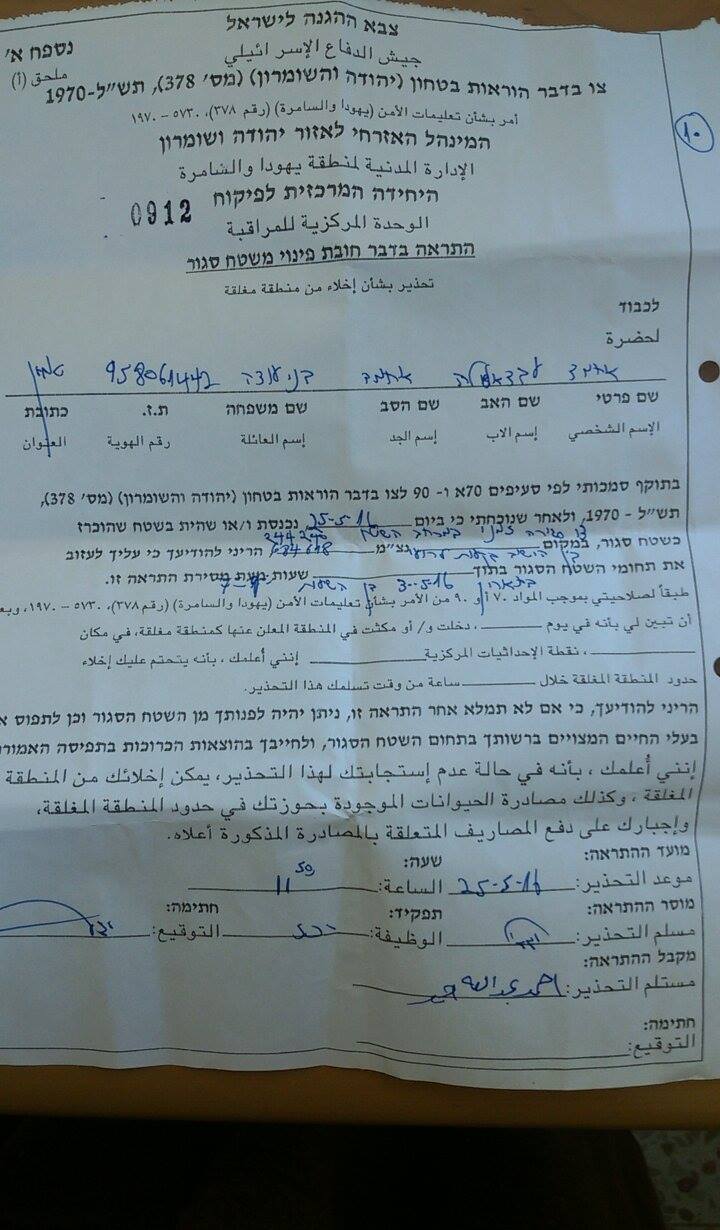 צבא ההגנה לישראל
נספח א'
جيش الدفاع الإسرائيلي
ملحق (أ)
צו בדבר הוראות בטחון (יהודה והשומרון) (מס' 378), תש"ל-1970
أمر بشأن تعليمات الأمن (يهودا والسامرة) (رقم ٣٧٨)، ٥٧٣٠ - ١٩٧٠
המינהל האזרחי לאזור יהודה ושומרון
١٠
الإدارة المدنية لمنطقة يهودا والسامرة
היחידה המרכזית לפיקוח
0912
الوحدة المركزية للمراقبة
התראה בדבר חובת פינוי משטח סגור
تحذير بشأن إخلاء من منطقة مغلقة
לכבוד
لحضرة
אחמד עבדאללה אחמד בני עודה 958061442
שם פרטי שם האב שם הסב שם משפחה ת.ז. כתובת
الإسم الشخصي إسم الاب إسم الجد إسم العائلة رقم الهوية العنوان
בתוקף סמכותי לפי סעיפים 70א ו- 90 לצו בדבר הוראות בטחון (יהודה והשומרון) (מס' 378),
תש"ל - 1970, ולאחר שנוכחתי כי ביום 25-5-16, נכנסת ו/או שהית בשטח שהוכרז
כשטח סגור, במקום נצ"מ הריני להודיעך כי עליך לעזוב
את תחומי השטח הסגור בתוך 3-5-16 שעות מעת מסירת התראה זו.
طبقاً لصلاحيتي بموجب المواد ٧٠أ و ٩٠ من الأمر بشأن تعليمات الأمن (يهودا والسامرة) (رقم ٣٧٨)، ٥٧٣٠ - ١٩٧٠، وبعد
أن تبين لي بأنه في يوم ، دخلت و/ أو مكثت في المنطقة المعلن عنها كمنطقة مغلقة، في مكان
، نقطة الإحداثيات المركزية إنني أعلمك ، بأنه يتحتم عليك إخلاء
حدود المنطقة المغلقة خلال ساعة من وقت تسلمك هذا التحذير.
הריני להודיעך, כי אם לא תמלא אחר התראה זו, ניתן יהיה לפנותך מן השטח הסגור וכן לתפוס
בעלי החיים המצויים ברשותך בתחום השטח הסגור, ולחייבך בהוצאות הכרוכות בתפיסה האמורה
إنني أعلمك ، بأنه في حالة عدم إستجابتك لهذا التحذير، يمكن إخلائك من المنطقة
المغلقة ، وكذلك مصادرة الحيوانات الموجودة بحوزتك في حدود المنطقة المغلقة،
وإجبارك على دفع المصاريف المتعلقة بالمصادرة المذكورة أعلاه.
מועד ההתראה: שעה:
موعد التحذير: 25-5-16 الساعة: 11 50
מוסר ההתראה: תפקיד: חתימה:
مسلم التحذير: الوظيفة: التوقيع:
מקבל ההתראה:
مستلم التحذير: احمد عبد الله
חתימה:
التوقيع: